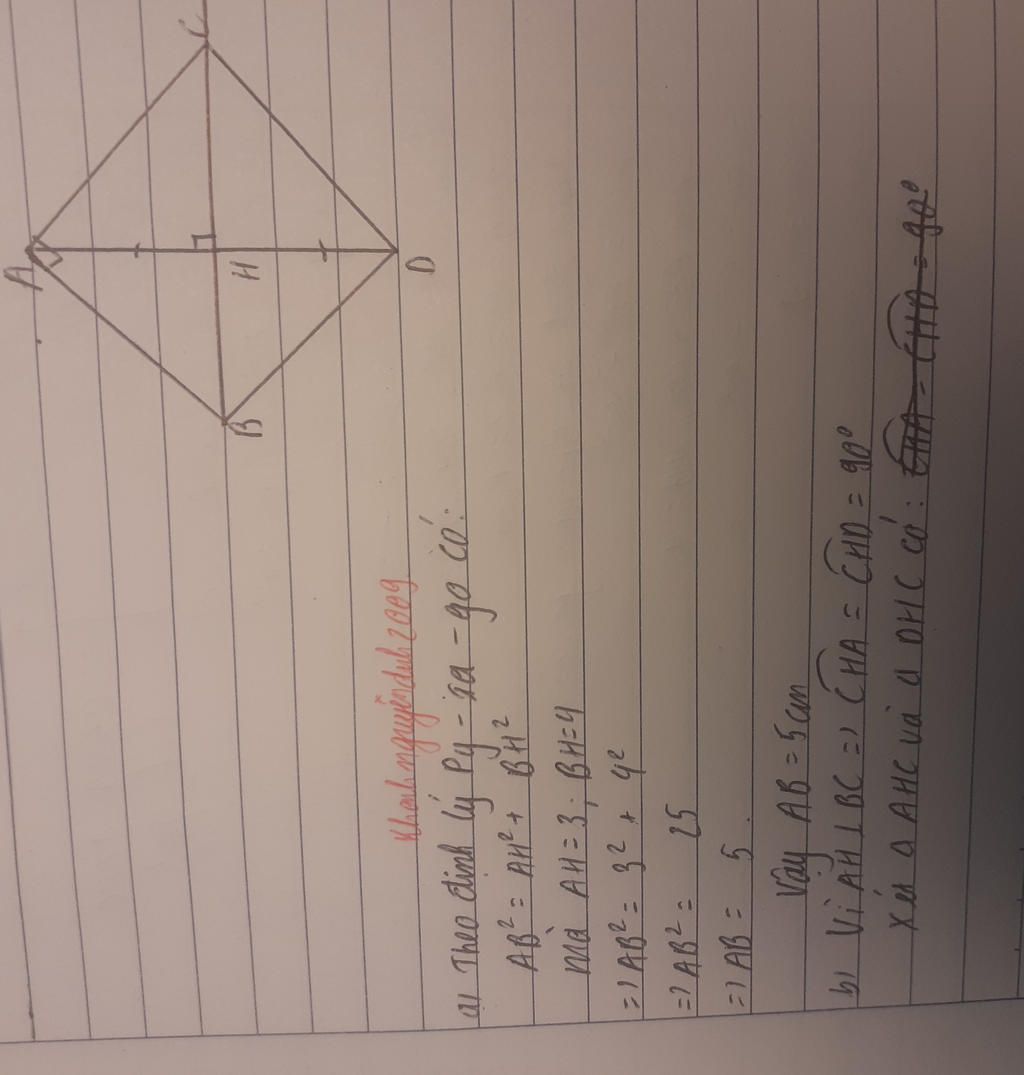 A
B
H
C
D
Khanhnguyễnđinh2009
a) Theo định lý Py-ta-go có:
AB² = AH² + BH²
mà AH = 3; BH = 4
=> AB² = 3² + 4²
=> AB² = 25
=> AB = 5.
Vậy AB = 5cm
b) Vì AH ⊥ BC => CHA = CHD = 90°
Xét Δ AHC và Δ DHC có: CHA = CHD = 90°